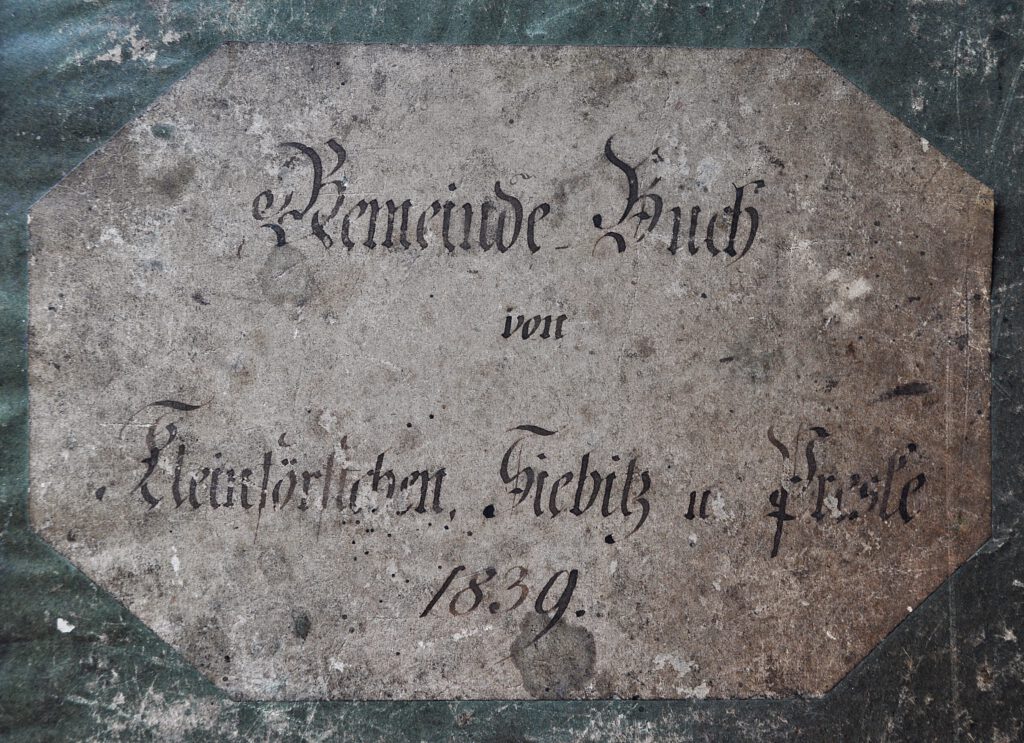 Gemeinde-Buch
von
Kleinförstchen, Siebitz u Preske
1839.